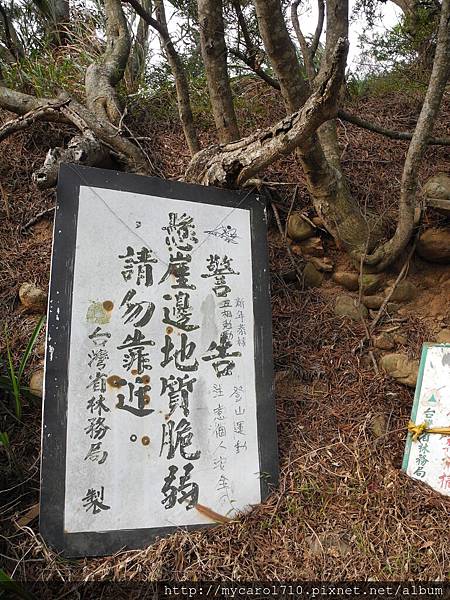 警告
懸崖邊地質脆弱
請勿靠近。
台灣省林務局 製
新年恭禧
互相鼓勵
登山運動
注意個人安全
林務局
http://mycarol710.pixnet.net/album